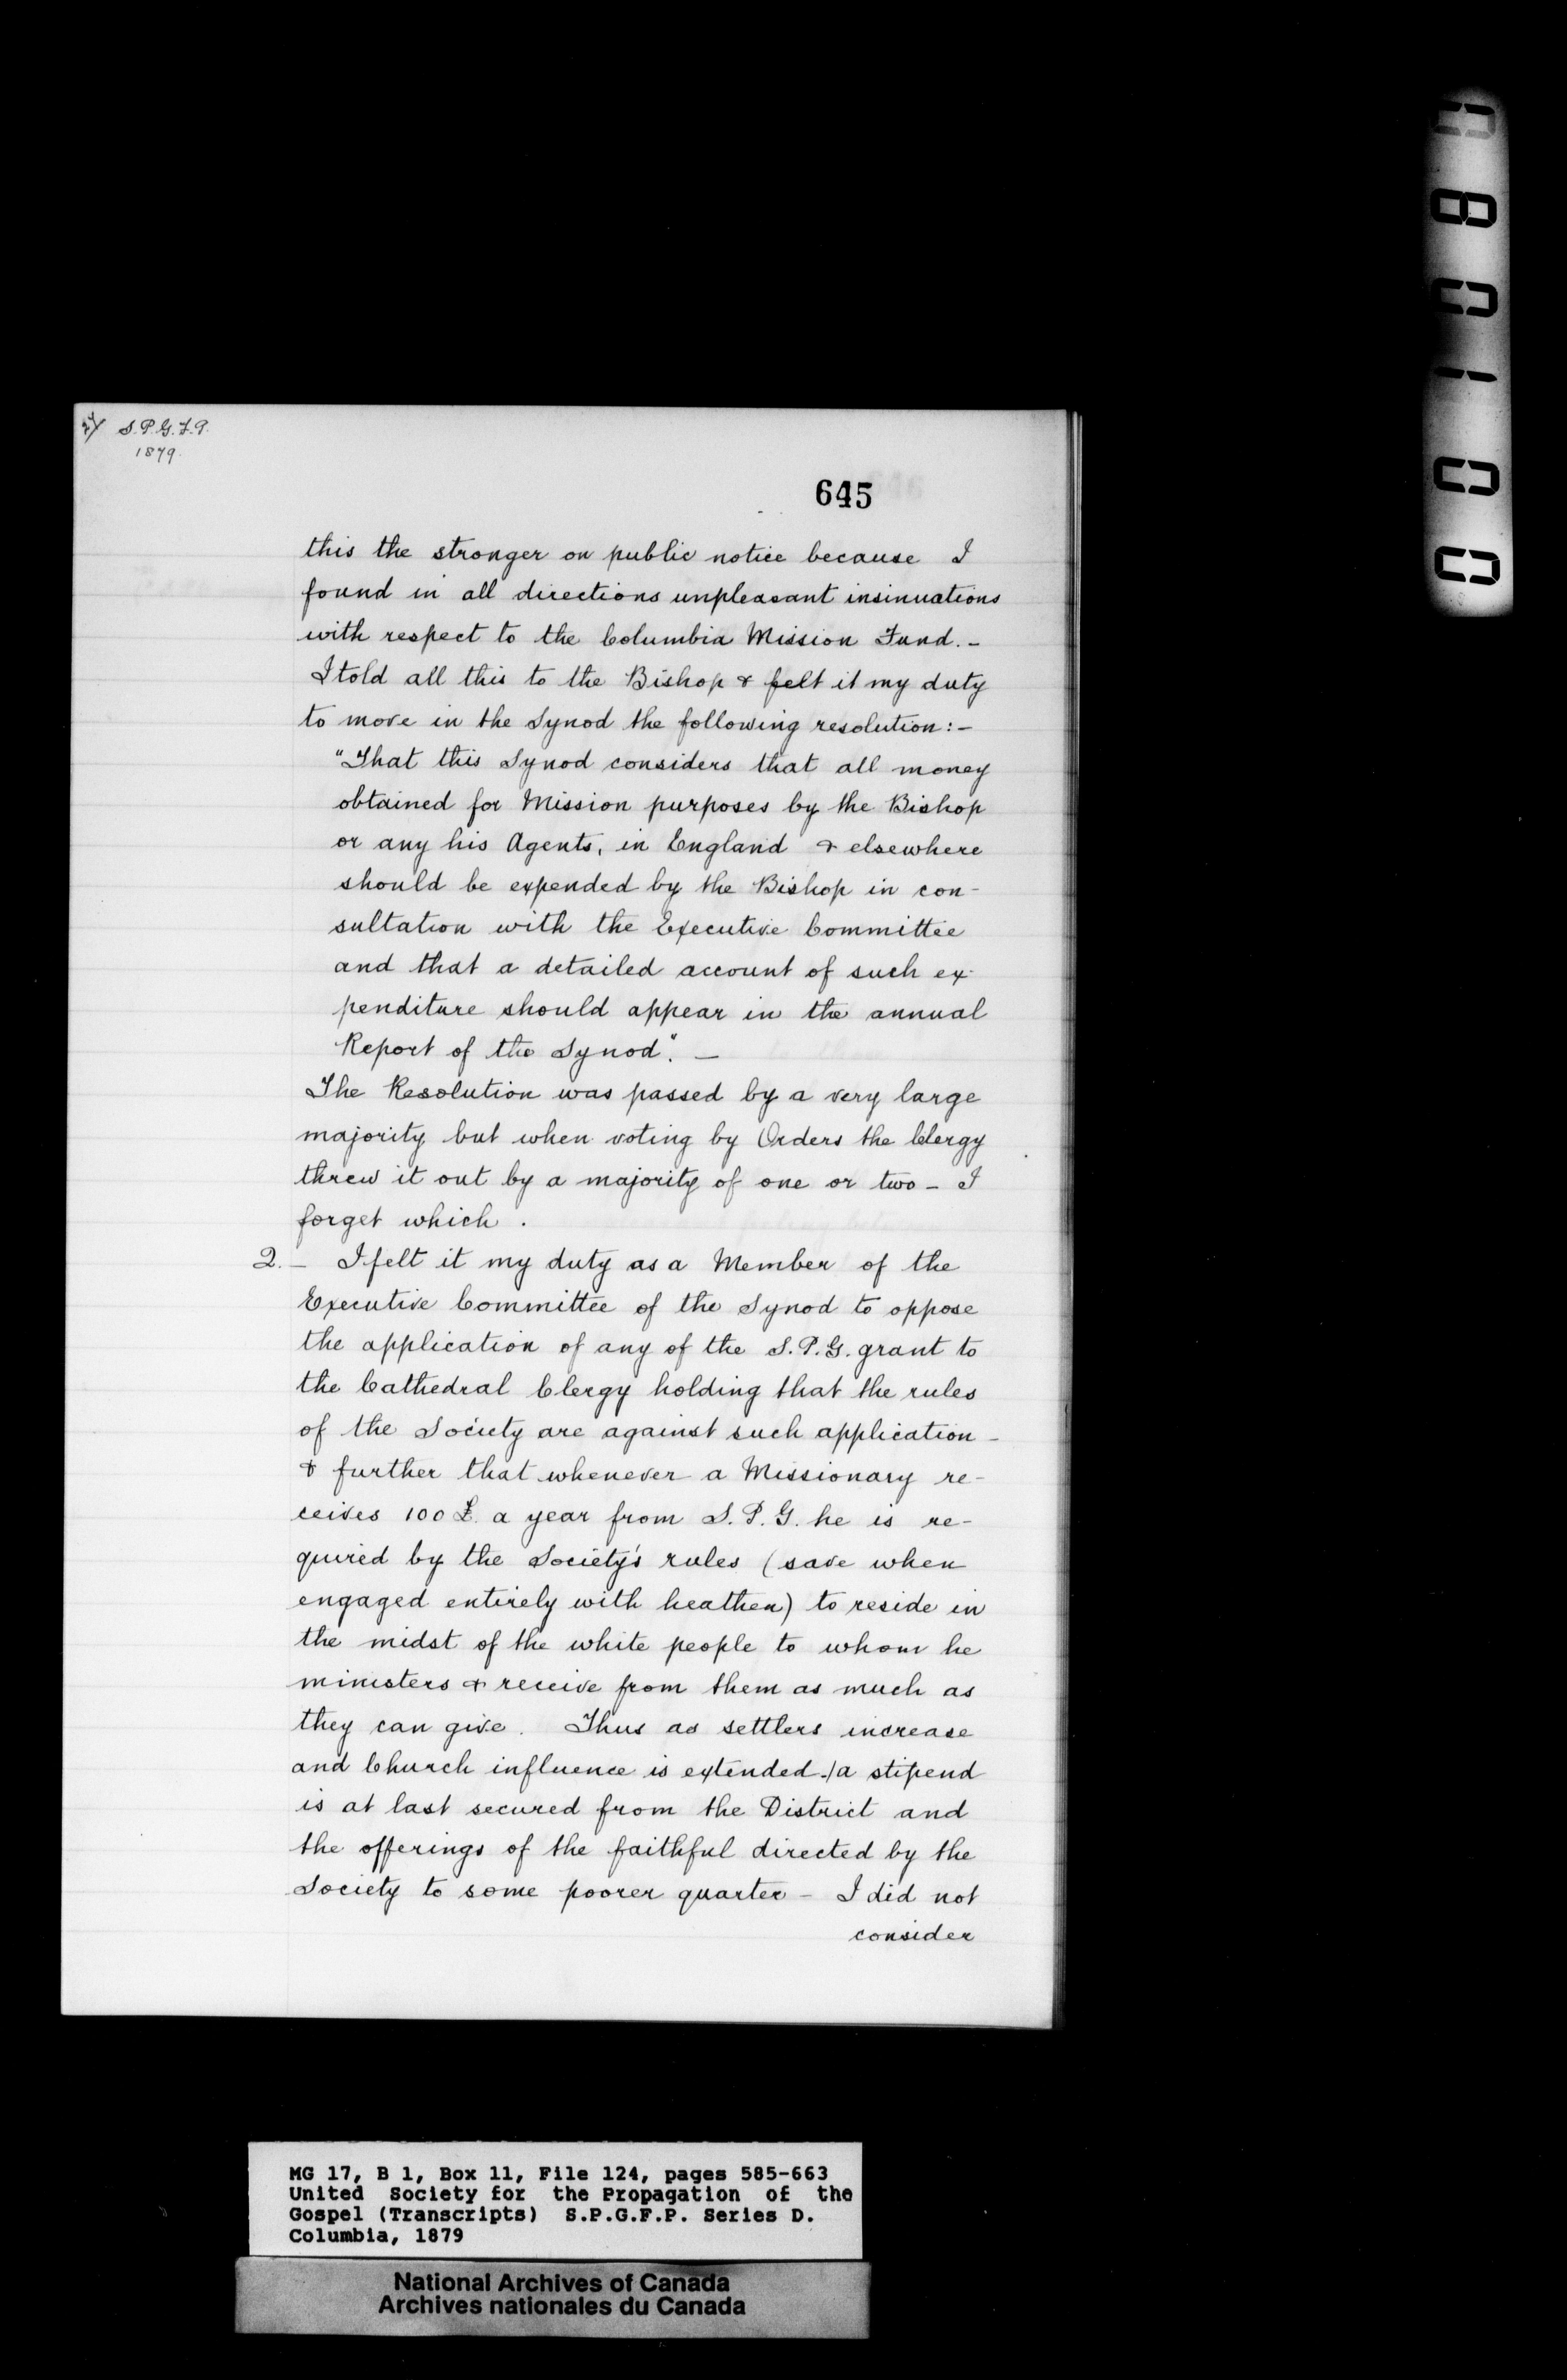 S.P.G.F.P.
1879.
645
this the stronger on public notice because I
found in all directions unpleasant insinuations
with respect to the Columbia Mission Fund. -
I told all this to the Bishop & felt it my duty
to move in the Synod the following resolution:-
"That this Synod considers that all money
obtained for Mission purposes by the Bishop
or any his Agents, in England & elsewhere
should be expended by the Bishop in con-
sultation with the Executive Committee
and that a detailed account of such ex-
penditure should appear in the annual
Report of the Synod". -
The Resolution was passed by a very large
majority but when voting by Orders the Clergy
threw it out by a majority of one or two - I
forget which.
2. - I felt it my duty as a Member of the
Executive Committee of the Synod to oppose
the application of any of the S.P.G. grant to
the Cathedral Clergy holding that the rules
of the Society are against such application -
& further that whenever a Missionary re-
ceives 100 £. a year from S.P.G. he is re-
quired by the Society's rules (save when
engaged entirely with heathen) to reside in
the midst of the white people to whom he
ministers & receive from them as much as
they can give. Thus as settlers increase
and Church influence is extended a stipend
is at last secured from the District and
the offerings of the faithful directed by the
Society to some poorer quarter - I did not
consider
MG 17, B 1, Box 11, File 124, pages 585-663
United Society for the Propagation of the
Gospel (Transcripts) S.P.G.F.P. Series D.
Columbia, 1879
National Archives of Canada
Archives nationales du Canada